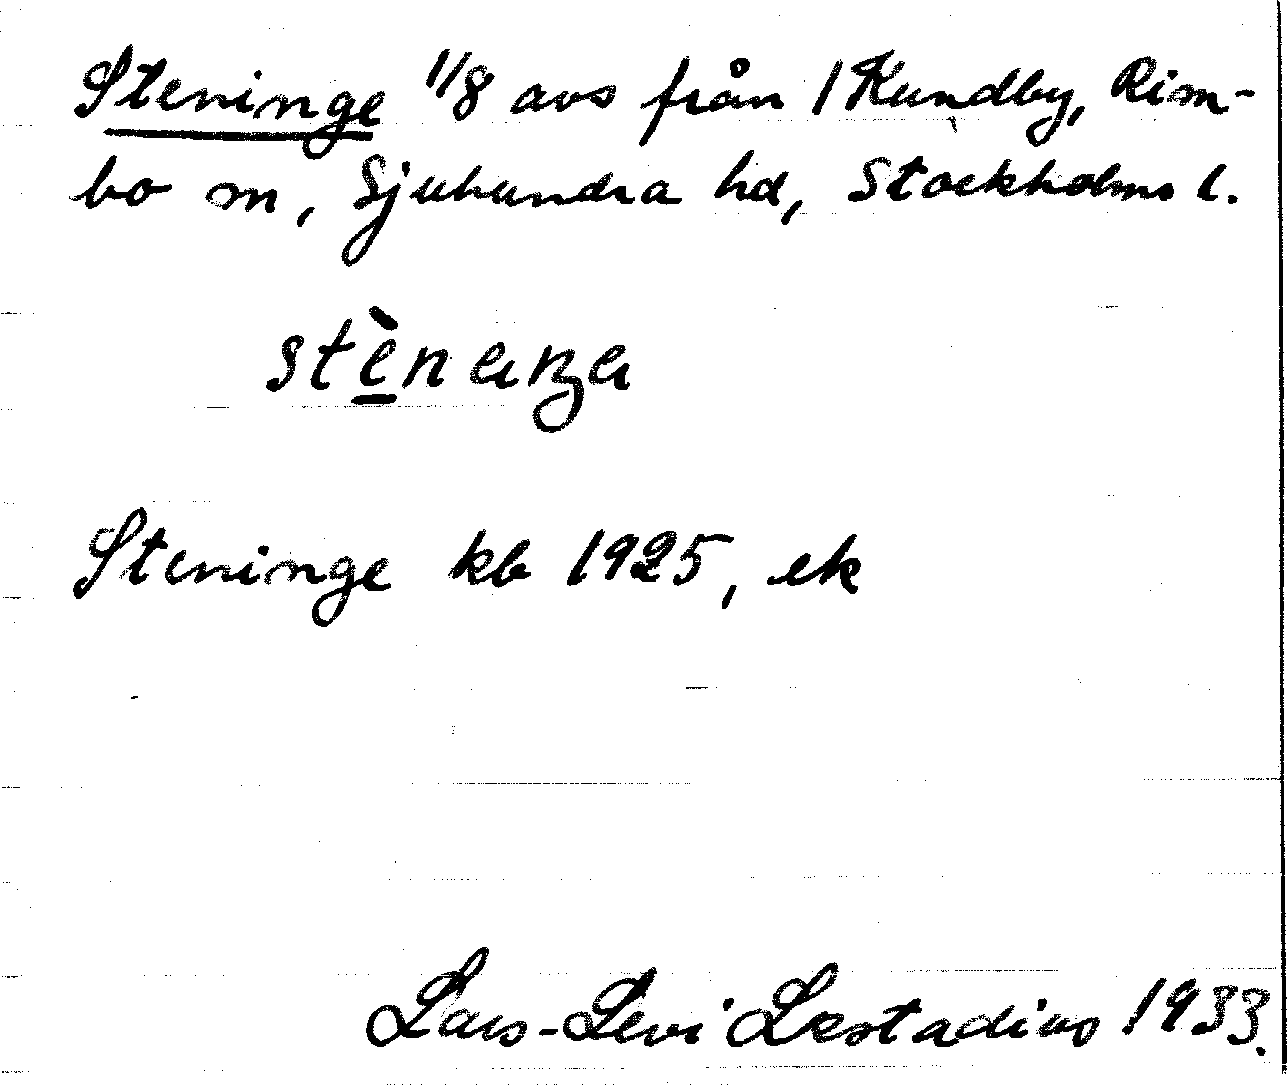 Steninge 1/8 avs från 1 Kundby, Rim-
bo sn, Sjuhundra hd, Stockholms l.
Steninge kb 1925, ek
Lars-Levi Læstadius 1933.